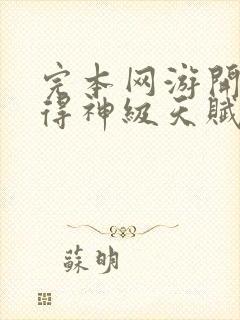 完本网游開
得神級天賦
蘇明